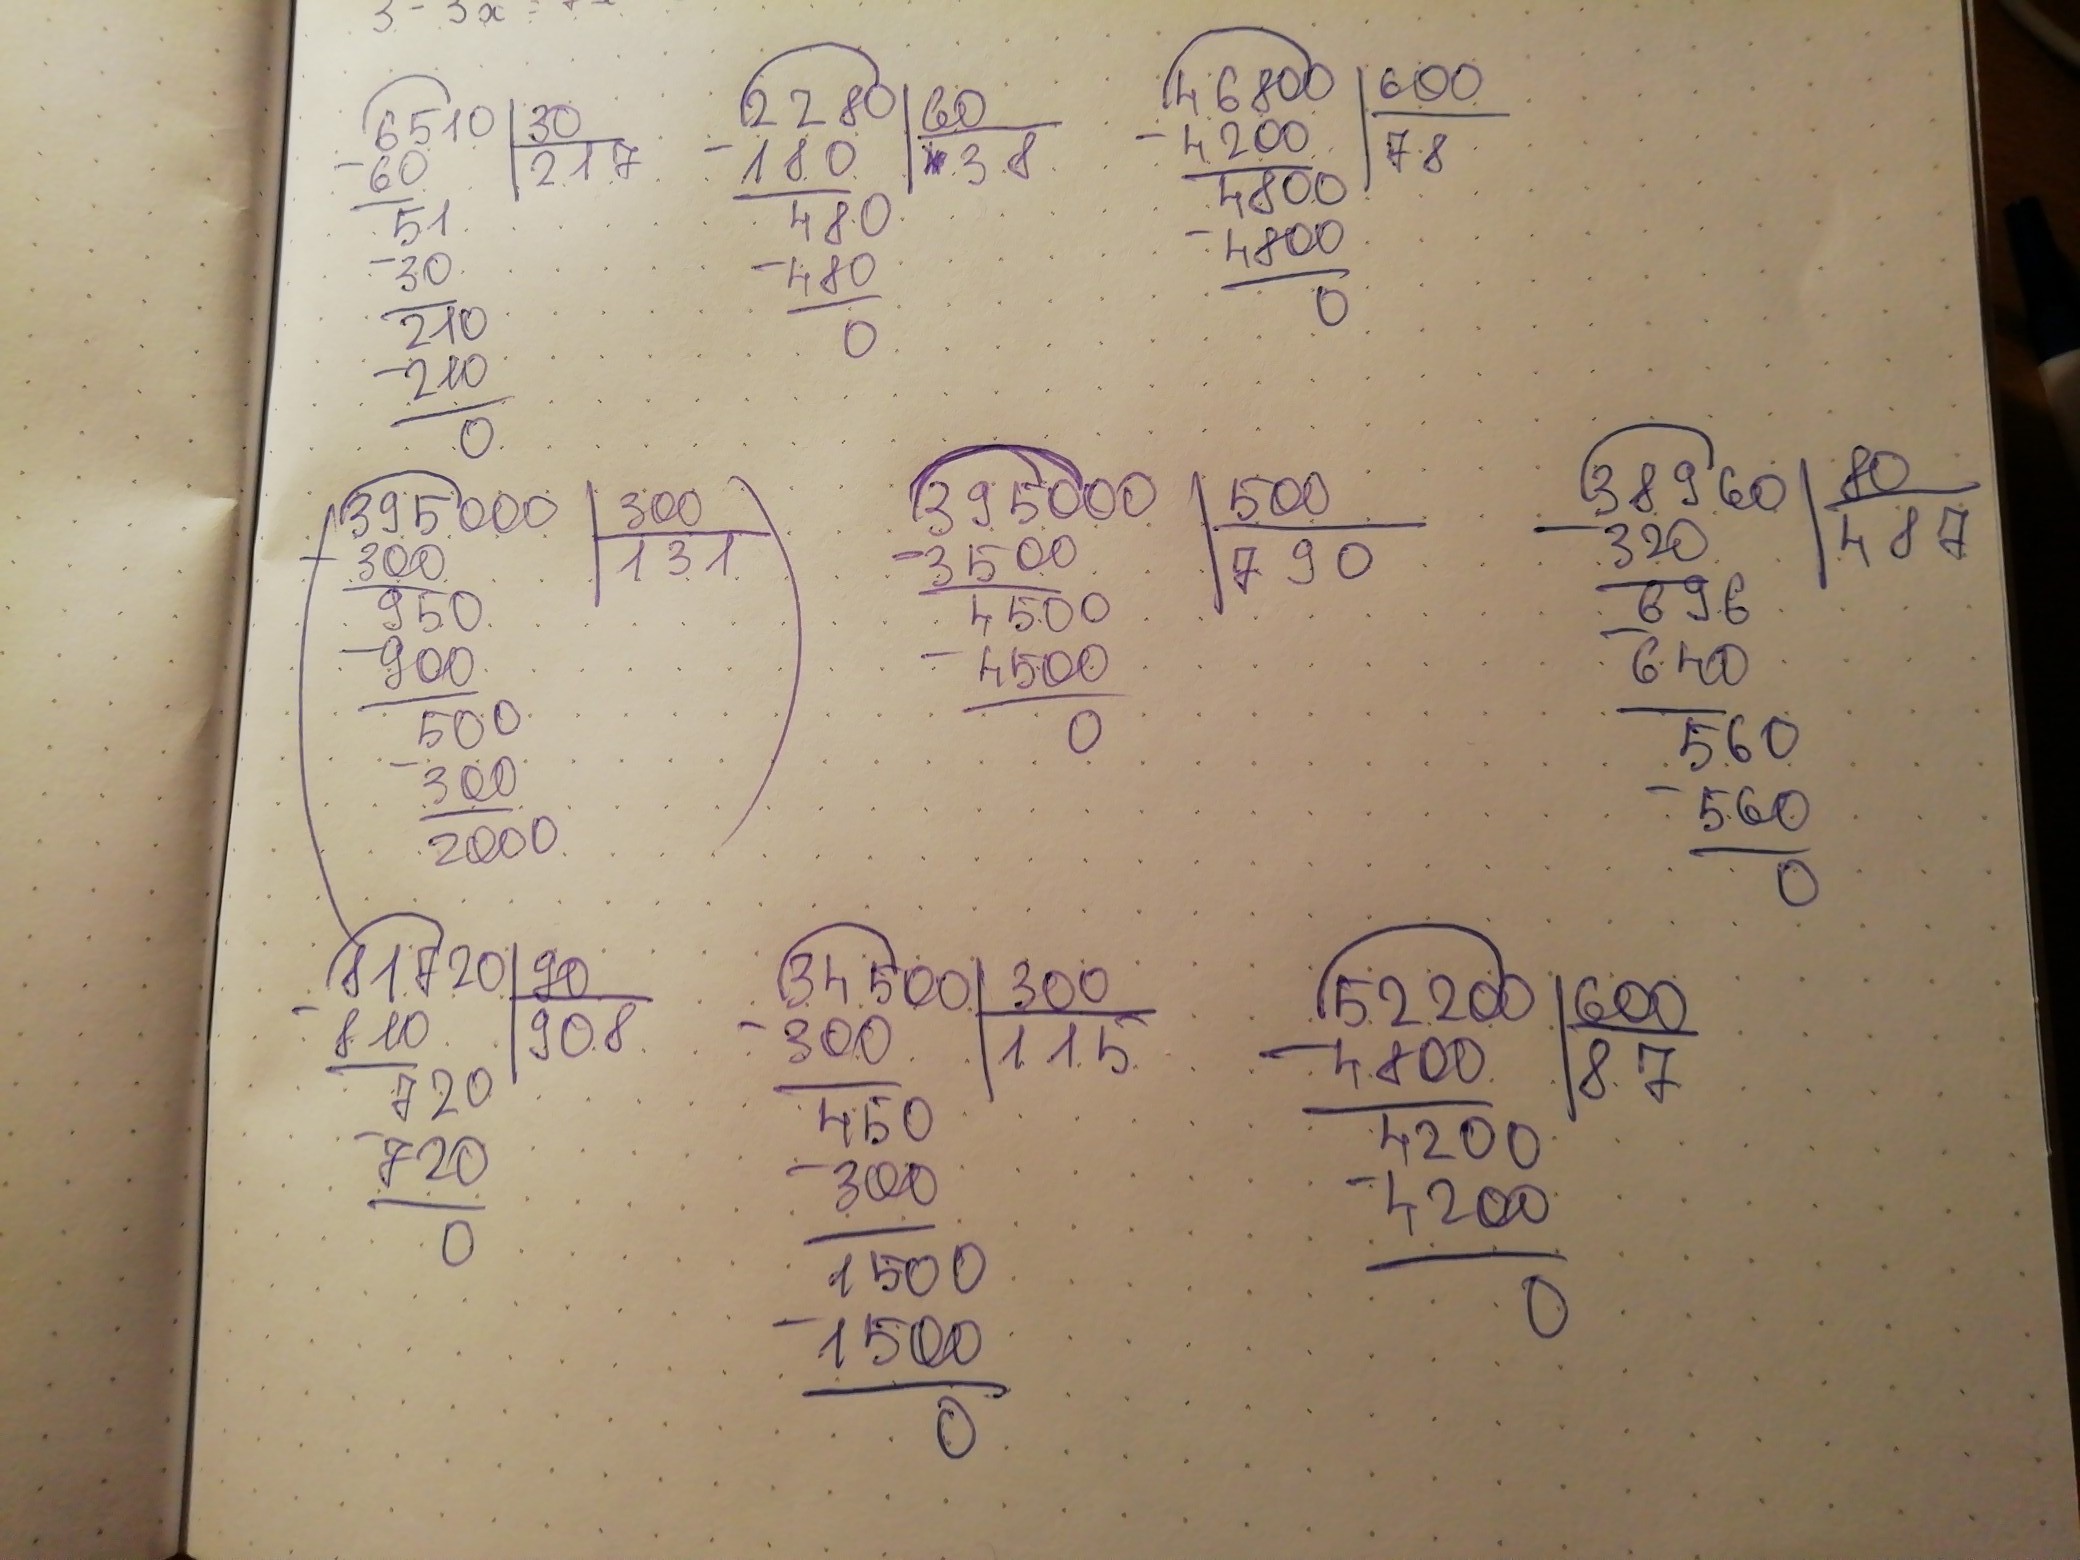 3 - 3x =
6510 30
- 60 217
51
- 30
210
- 210
0
2280 60
- 180 38
480
- 480
0
46800 600
- 4200 78
4800
- 4800
0
395000 300
- 300 131
950
- 900
500
- 300
2000
395000 500
- 3500 790
4500
- 4500
0
38960 80
- 320 487
696
- 640
560
- 560
0
81720 90
- 810 908
720
- 720
0
34500 300
- 300 115
450
- 300
1500
- 1500
0
52200 600
- 4800 87
4200
- 4200
0